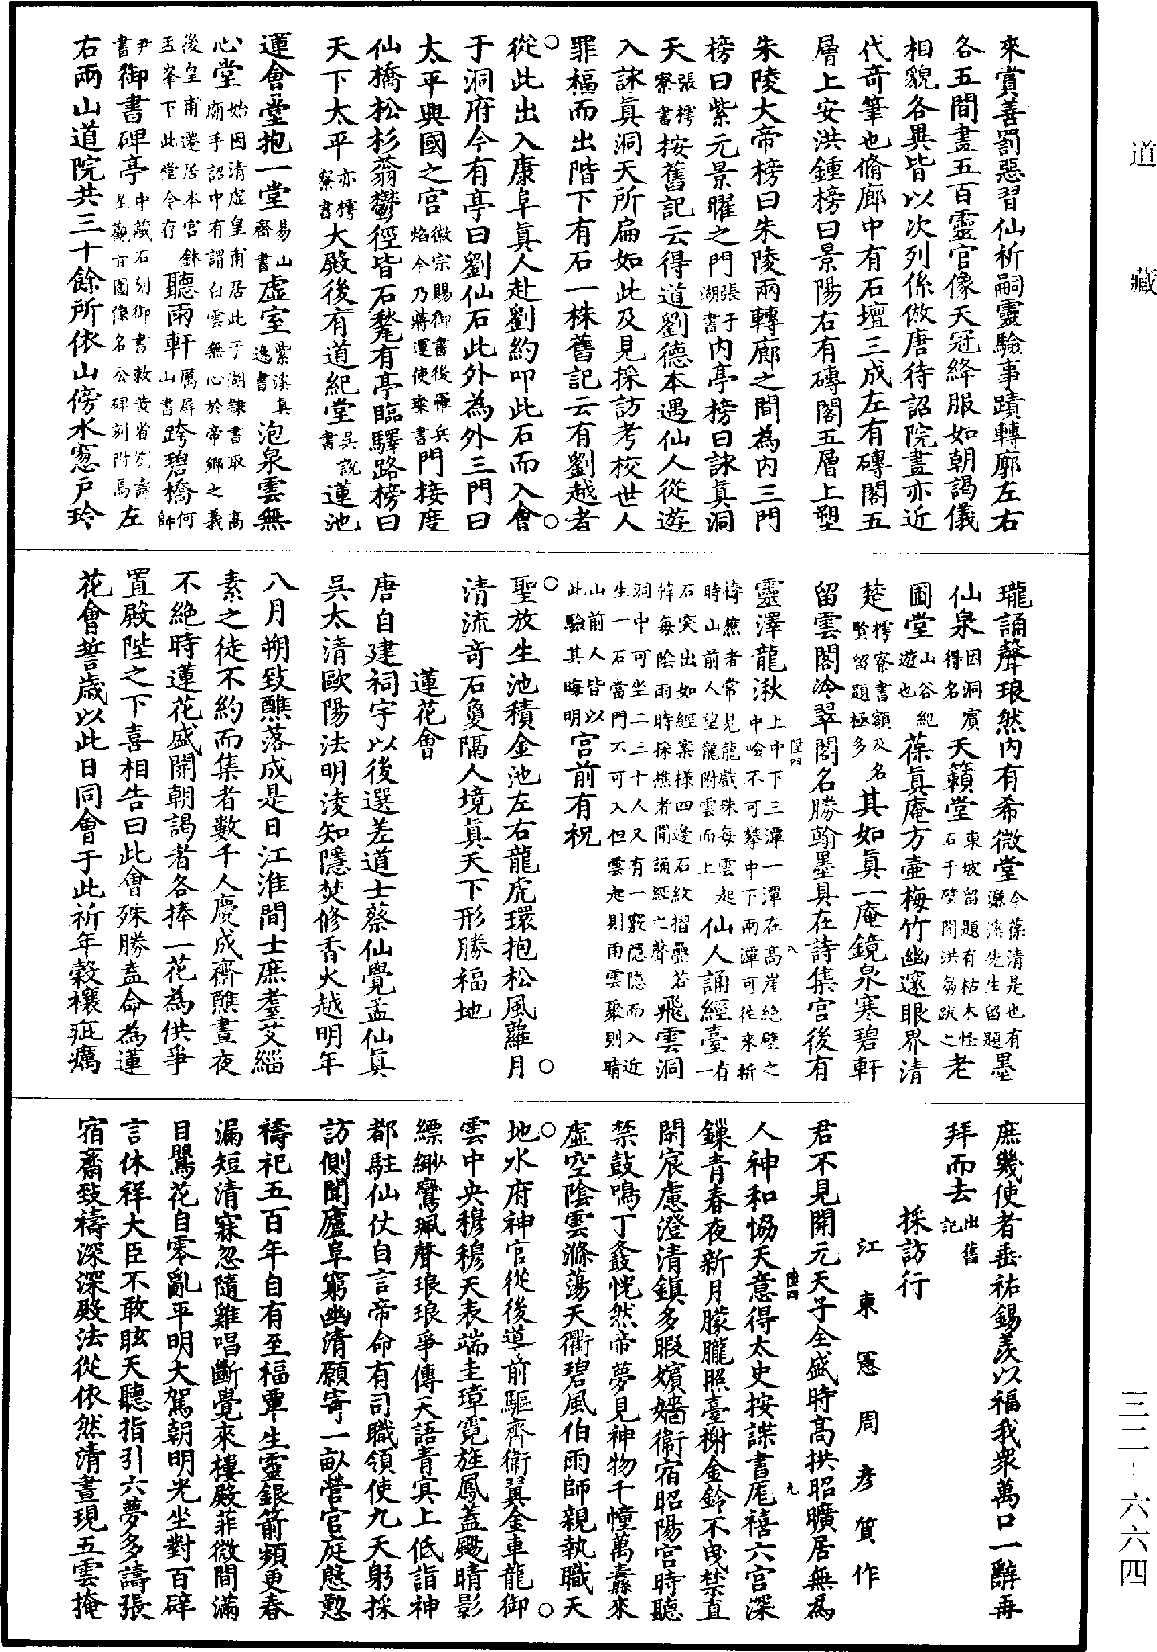 道藏
來賞善罰惡習仙祈嗣靈驗事蹟轉廊左右
各五間畫五百靈官像天冠絳服如朝謁儀
相貌各異皆以次列係倣唐待詔院畫亦近
代奇筆也脩廊中有石壇三成左有磚閣五
層上安洪鍾榜曰景陽右有磚閣五層上塑
朱陵大帝榜曰朱陵兩轉廊之間為內三門
榜曰紫元景曜之門張于湖書內亭榜曰詠真洞
天張樗寮書按舊記云得道劉德本遇仙人從遊
入詠真洞天所扁如此及見採訪考校世人
罪福而出階下有石一株舊記云有劉越者
從此出入康阜真人赴劉約叩此石而入會
于洞府今有亭曰劉仙石此外為外三門曰
太平興國之宮徽宗賜御書後罹兵焰今乃蔣運使粢書門接度
仙橋松杉蓊鬱徑皆石甃有亭臨驛路榜曰
天下太平亦樗寮書大殿後有道紀堂吳說書蓮池
運會堂抱一堂易山齋書虛室紫溪真逸書泡泉雲無
心堂始因清虛皇甫居此于湖隸書取高廟手詔中有謂白雲無心於帝鄉之義後皇甫遷居本宮銖五峯下此堂今存聽雨軒厲屏山書跨碧橋何師尹書御書碑亭中藏石刻御書敕黃省劄壽星觀音圖像名公碑刻附焉左
右兩山道院共三十餘所依山傍水窻戶玲
瓏誦聲琅然內有希微堂今葆清是也有濂溪先生留題墨
仙泉因洞賓得名天籟堂東坡留題有枯木怪石于壁間洪芻跋之老
圃堂山谷紀遊也葆真庵方壺梅竹幽邃眼界清
楚樗寮書額及名賢留題極多其如真一庵鏡泉寒碧軒
留雲閣泠翠閣名勝翰墨具在詩集宮後有
靈澤龍湫上中下三潭一潭在高崖絕壁之中唅不可攀中下兩潭可往來祈禱樵者常見龍戲珠每雲起時山前人望龍附雲而上仙人誦經臺一有石突出如經案樣四邊石紋摺疊若㡧每陰雨時採樵者聞誦經之聲飛雲洞洞中可坐二三十人又有一竅隱隱而入近生一石當門不可入但雲起則雨雲聚則晴山前人皆以此驗其晦明宮前有祝
聖放生池積金池左右龍虎環抱松風蘿月
清流奇石夐隔人境真天下形勝福地
蓮花會
唐自建祠宇以後選差道士蔡仙覺孟仙真
吳太清歐陽法明淩知隱焚修香火越明年
八月朔致醮落成是日江淮間士庶耆艾緇
素之徒不約而集者數千人慶成齋醮晝夜
不絕時蓮花盛開朝謁者各捧一花為供爭
置殿陛之下喜相告曰此會殊勝盍命為蓮
花會誓歲以此日同會于此祈年穀禳疵癘
庶幾使者垂祐錫羨以福我衆萬口一辭再
拜而去出舊記
採訪行
江東憲周彥質作
君不見開元天子全盛時高拱昭曠居無為
人神和恊天意得太史按諜書尾禧六宮深
鏁青春夜新月朦朧照臺榭金鈴不曳禁直
閑宸慮澄清鎮多暇嬪嬙衞宿昭陽宮時聽
禁鼓鳴丁鼕恍然帝夢見神物千幢萬纛來
虛空陰雲滌蕩天衢碧風伯雨師親執職天
地水府神官從後導前驅齊衞翼金車龍御
雲中央穆穆天表端圭璋霓旌鳳蓋颭晴影
縹緲鸞珮聲琅琅爭傳天語青冥上低詣神
都駐仙仗自言帝命有司職領使九天躬採
訪側聞廬阜窮幽清願寄一畝營宮庭慇懃
禱祀五百年自有至福覃生靈銀箭頻更春
漏短清寐忽隨雞唱斷覺來樓殿菲微間滿
目鸎花自零亂平明大駕朝明光坐對百辟
言休祥大臣不敢眩天聽指引六夢多譸張
宿齋致禱深深殿法從依然清晝現五雲掩
三二-六六四